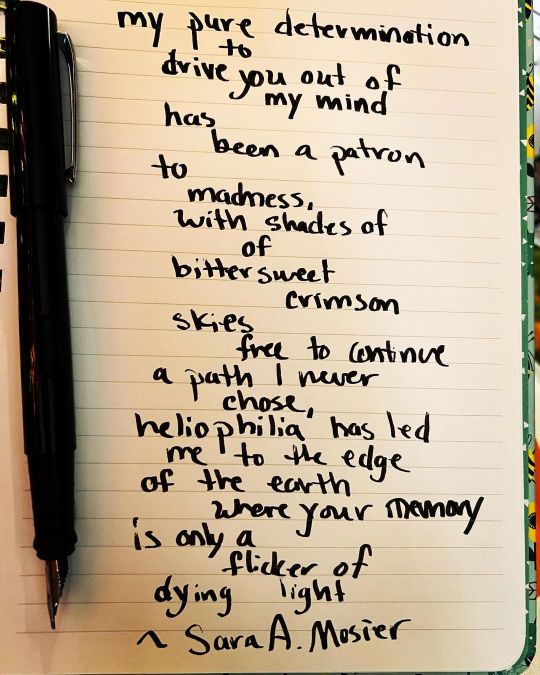 my pure determination
to
drive you out of
my mind
has
been a patron
to
madness,
with shades of
of
bittersweet
crimson
skies
free to continue
a path I never
chose,
heliophilia has led
me to the edge
of the earth
where your memory
is only a
flicker of
dying light
~ Sara A. Mosier